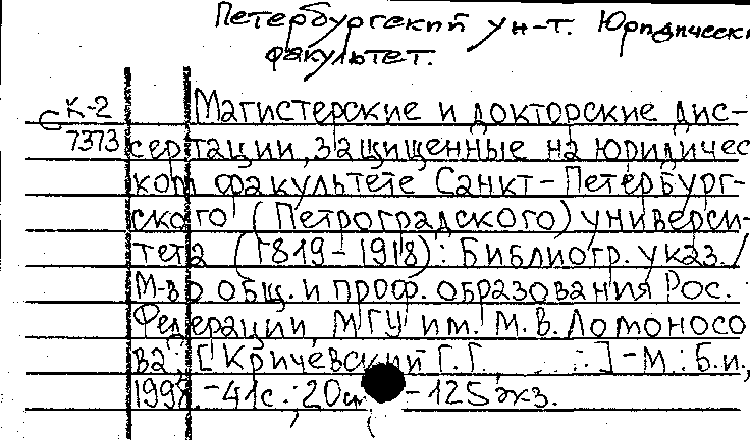 Петербургский ун-т. Юридически
факультет.
С К-2 Магистерские и докторские дис-
7373 сертации, защищенные на юридичес
ком факультете Санкт-Петербург-
ского (Петроградского) универси-
тета (1819-1918): Библиогр. указ./
М-во общ. и проф. образования Рос.
Федерации, МГУ им. М.В. Ломоносо
ва; [Кричевский Г.Г. ...] - М.: Б.и,
-41с.; 20см - 125 экз.